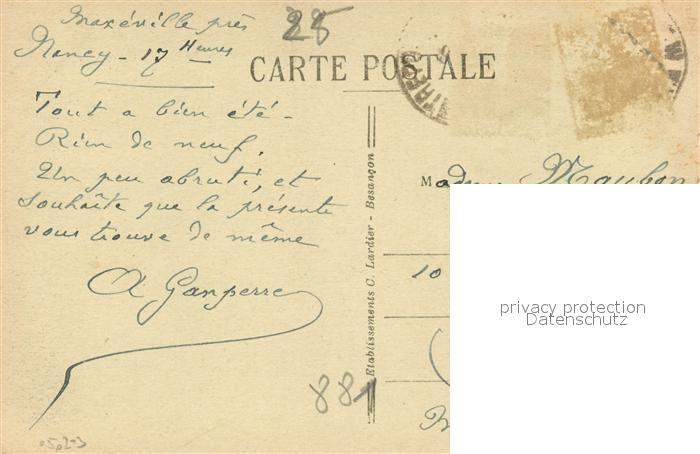 Maxéville près
Nancy - 17 Heures
28
CARTE POSTALE
Tout a bien été -
Rien de neuf,
Un peu abruti, et
souhaite que la présente
vous trouve de même
Etablissements C. Lardier - Besançon
10
881
privacy protection
Datenschutz